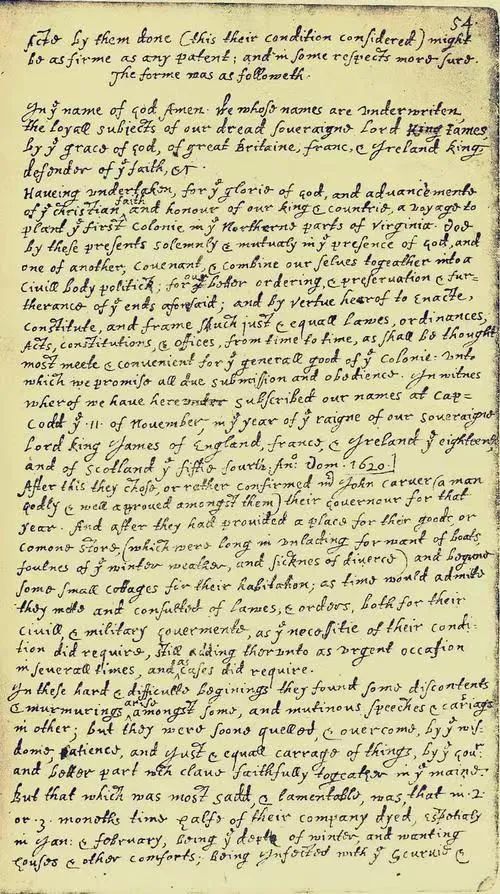 54.
Acts by them done (this their condition considered) might
be as firme as any patent; and in some respects more sure.
The forme was as followeth.
In yͤ name of god Amen. We whose names are underwriten,
the loyall subjects of our dread soveraigne Lord King James
by yͤ grace of god, of great Britaine, franc, & Ireland king,
defender of yͤ faith, &c
Haveing undertaken, for yͤ glorie of god, and advancemente
of yͤ christian faith and honour of our king & countrie, a voyage to
plant yͤ first colonie in yͤ Northerne parts of Virginia. Doe
by these presents solemnly & mutualy in yͤ presence of god, and
one of another, covenant, & combine our selves togeather into a
civill body politick; for our better ordering, & preservation & fur=
therance of yͤ ends aforesaid; and by vertue hearof to Enacte,
constitute, and frame such just & equall lawes, ordinances,
Acts, constitutions, & offices, from time to time, as shall be thought
most meete & convenient for yͤ generall good of yͤ Colonie: unto
which we promise all due submission and obedience. In witnes
wherof we have hereunder subscribed our names at Cap=
Codd yͤ .11. of November, in yͤ year of yͤ raigne of our soveraigne
Lord king James of England, france, & Ireland yͤ eighteenth
and of Scotland yͤ fiftie fourth. Anͦ: Dom. 1620.]
After this they chose, or rather confirmed mͬ John Carver (a man
godly & well approved amongst them) their governour for that
year. And after they had provided a place for their goods, or
comone store, (which were long in unlading for want of boats,
foulnes of yͤ winter weather, and sicknes of diverce) and begune
some small cottages for their habitation; as time would admitte
they mette and consulted of lawes, & orders, both for their
civill, & military governmente, as yͤ necessitie of their condi=
tion did require, still adding therunto as urgent occasion
in severall times, and as cases did require.
In these hard & difficulte beginings they found some discontents
& murmurings arise amongst some, and mutinous speeches & cariags
in other; but they were soone quelled, & overcome, by yͤ wis=
dome, patience, and just & equall carrage of things, by yͤ govͬ
and better part wͨʰ clave faithfully togeather in yͤ maine.
But that which was most sadd, & lamentable, was, that in .2.
or .3. moneths time halfe of their company dyed, espetialy
in Jan: & february, being yͤ depth of winter, and wanting
houses & other comforts; being Infected with yͤ Scurvie &